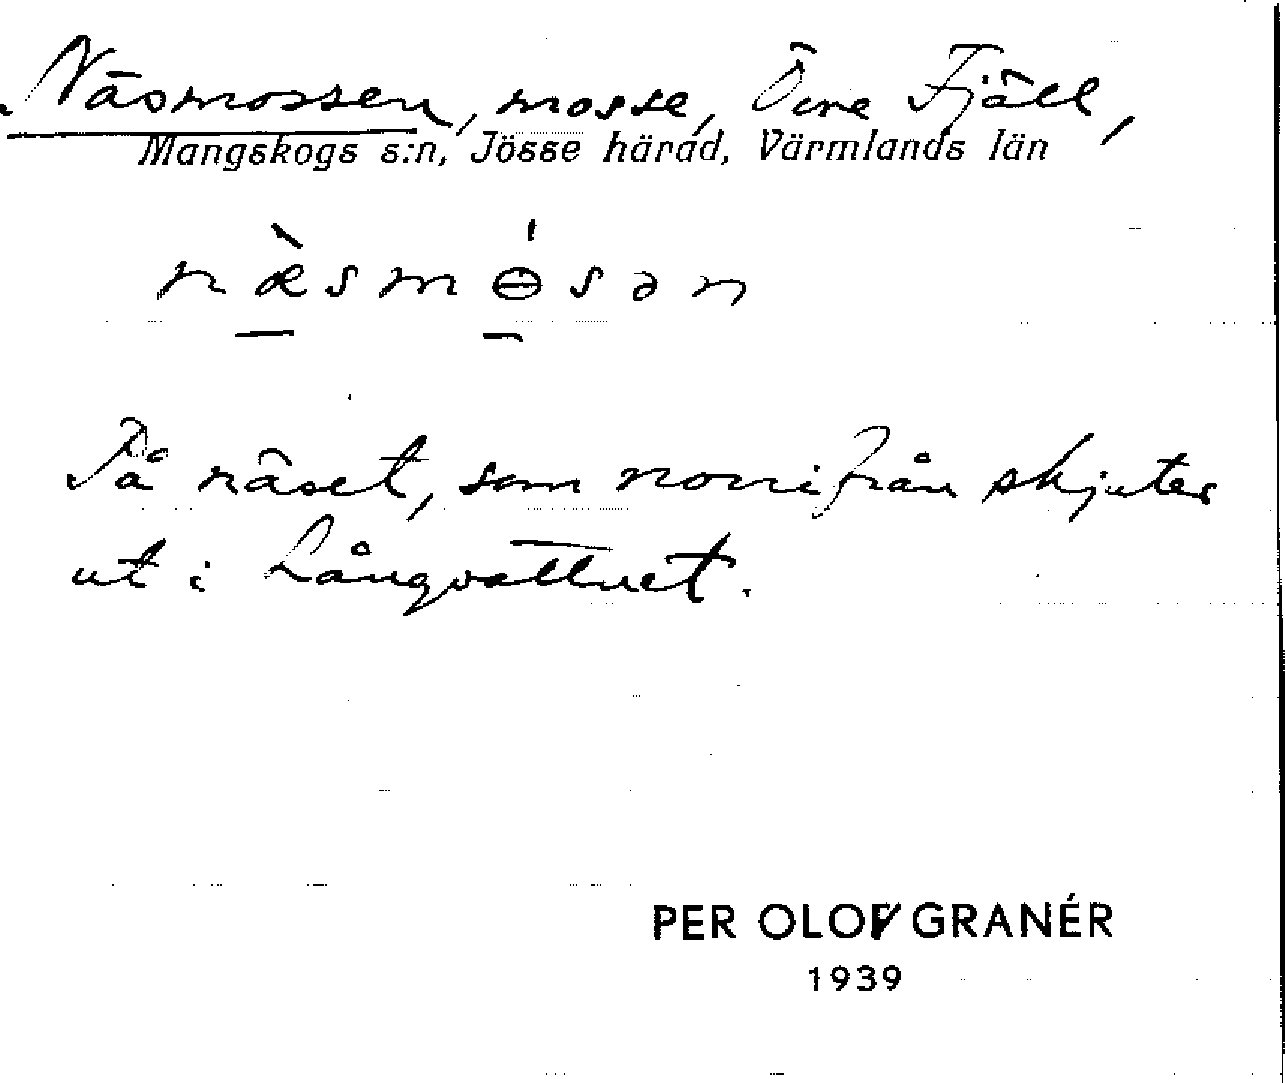 Näsmossen, mosse, Övre Fjäll,
Mangskogs s:n, Jösse härad, Värmlands län
næ̀smɵ́sən
På näset, som norrifrån skjuter
ut i Långvattnet.
PER OLOV GRANÉR
1939